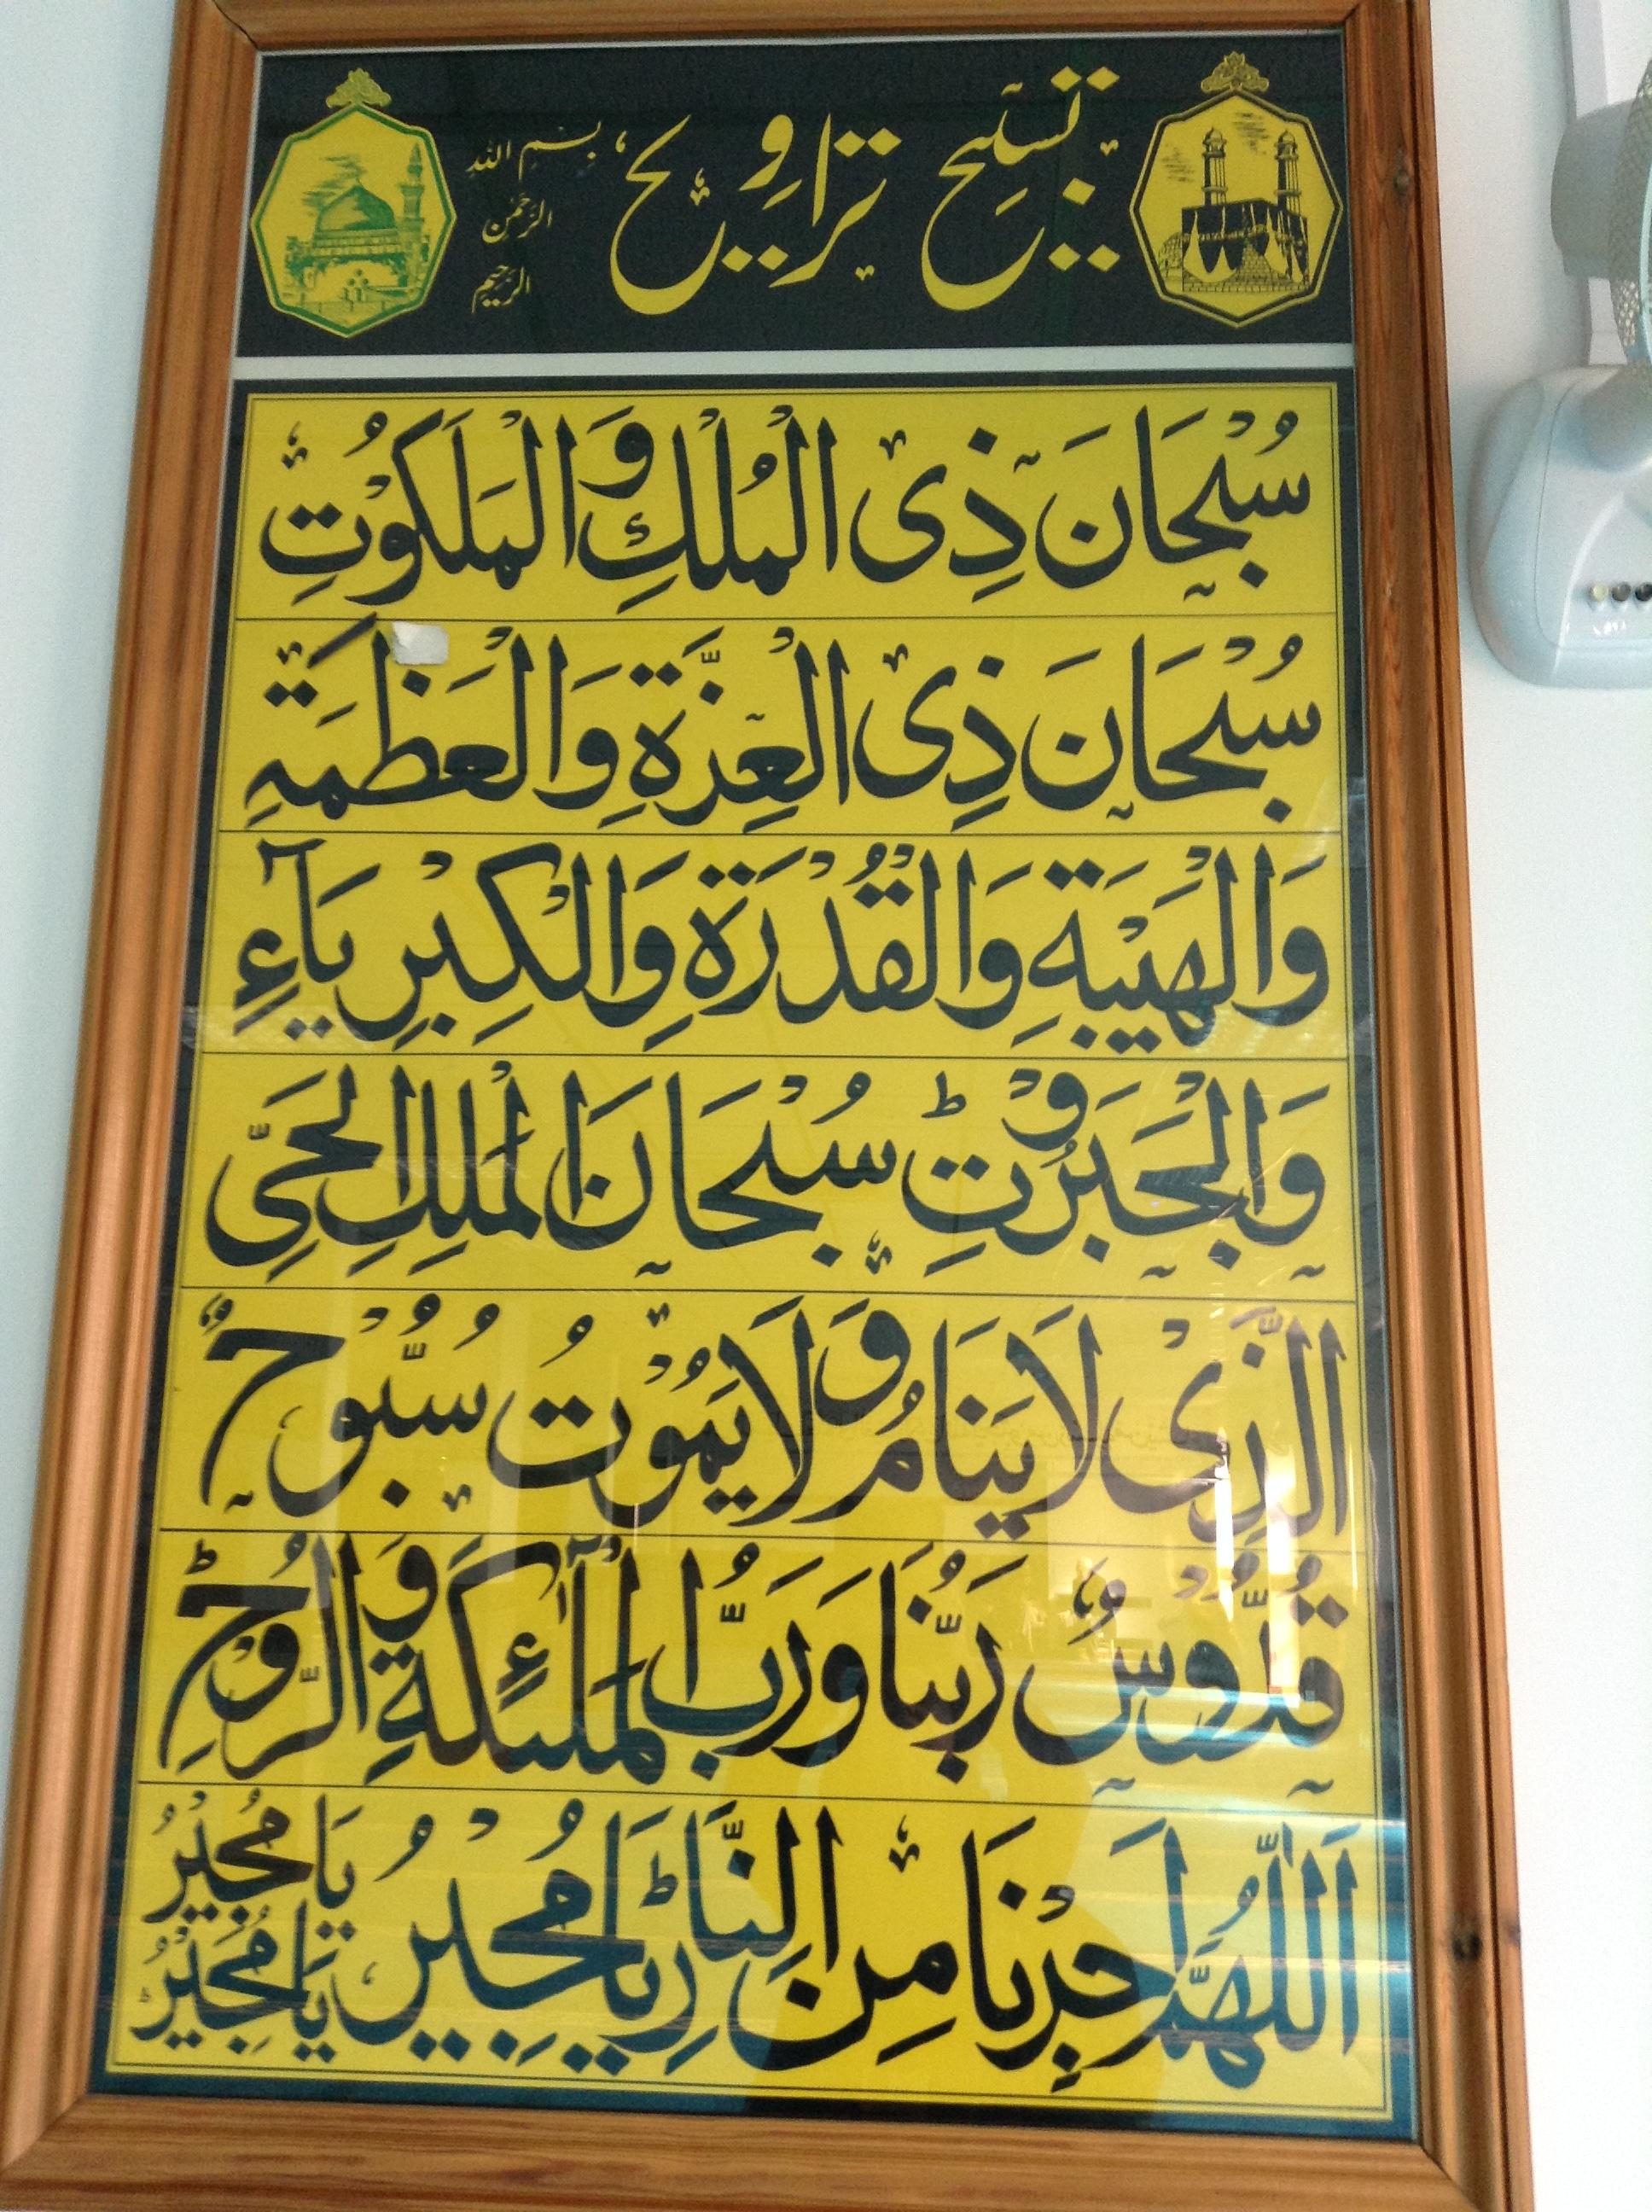 تسبیح تراویح
بسم الله
الرحمن
الرحیم
سُبْحَانَ ذِی الْمُلْكِ وَالْمَلَكُوْتِ
سُبْحَانَ ذِی الْعِزَّةِ وَالْعَظَمَةِ
وَالْهَيْبَةِ وَالْقُدْرَةِ وَالْكِبْرِيَآءِ
وَالْجَبَرُوْتِ ؕ سُبْحَانَ الْمَلِكِ الْحَیِّ
الَّذِیْ لَا يَنَامُ وَلَا يَمُوْتُ سُبُّوْحٌ
قُدُّوْسٌ رَبُّنَا وَرَبُّ الْمَلٰٓئِكَةِ وَالرُّوْحِ ؕ
اَللّٰهُمَّ اَجِرْنَا مِنَ النَّارِ ؕ يَا مُجِيْرُ يَا مُجِيْرُ
يَا مُجِيْرُ ؕ